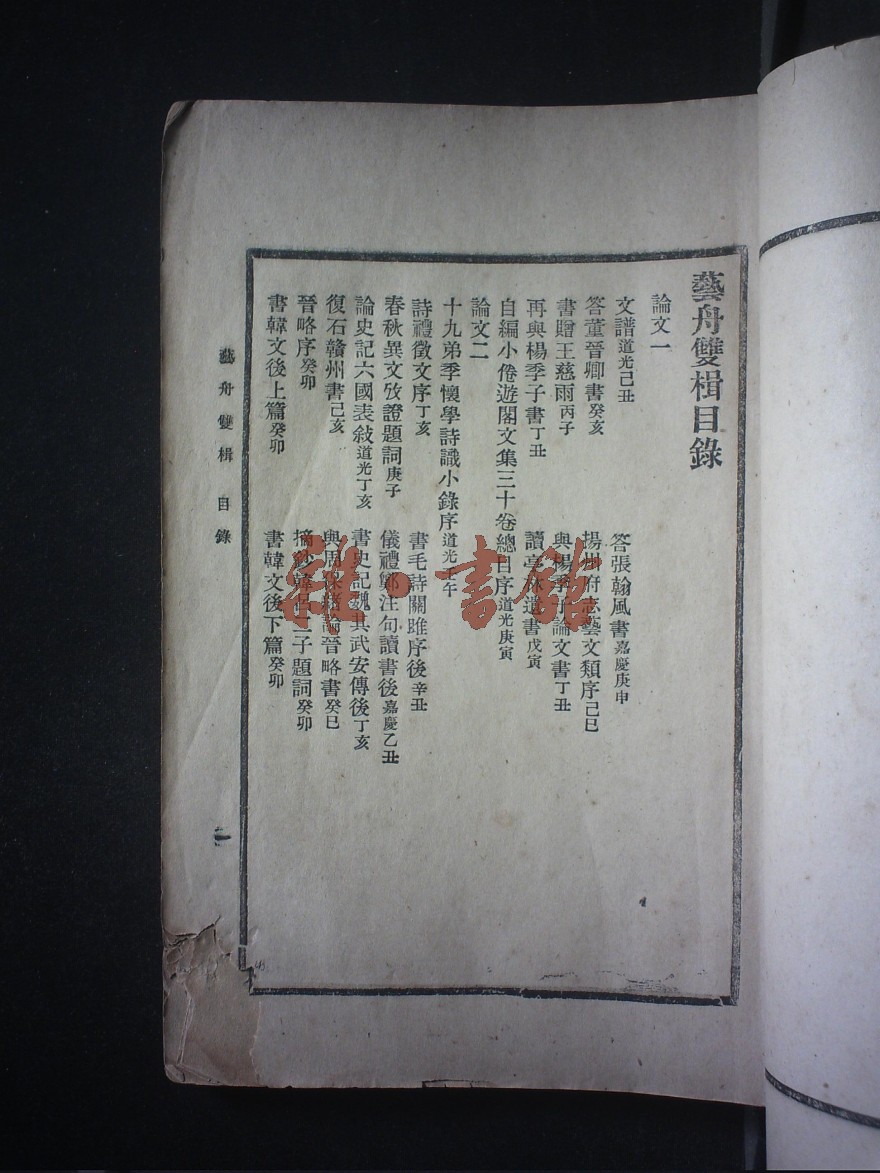 藝舟雙楫目錄
論文一
文譜道光己丑
答張翰風書嘉慶庚申
答董晉卿書癸亥
揚州府志藝文類序己巳
書贈王慈雨丙子
與楊季子論文書丁丑
再與楊季子書丁丑
讀亭林遺書戊寅
自編小倦遊閣文集三十卷總目序道光庚寅
論文二
十九弟季懷學詩識小錄序道光壬午
詩禮徵文序丁亥
書毛詩關雎序後辛丑
春秋異文攷證題詞庚子
儀禮鄭注句讀書後嘉慶乙丑
論史記六國表敍道光丁亥
書史記魏其武安傳後丁亥
復石贛州書己亥
與周保緒論晉略書癸巳
晉略序癸卯
摘鈔韓呂二子題詞癸卯
書韓文後上篇癸卯
書韓文後下篇癸卯
藝舟雙楫 目錄
一
雜·書館